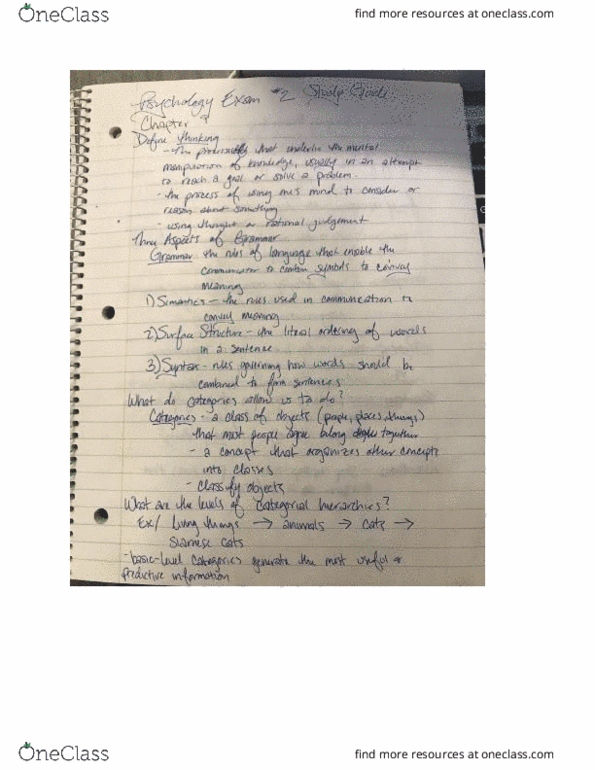 OneClass
find more resources at oneclass.com
Psychology Exam #2 Study Guide
Chapter
Define thinking
- the that underlie the mental
manipulation of knowledge, usually in an attempt
to reach a goal or solve a problem.
- the process of using one's mind to consider or
reason about something
- using thought or rational judgement
Three Aspects of Grammar
Grammar the rules of language that enable the
communicator to combin symbols to convay
meaning
1) Semantics - the rules used in communication to
convey meaning
2) Surface Structure - the literal ordering of words
in a sentence
3) Syntax - rules governing how words should be
combined to form sentences
What do categories allow us to do?
Categories - a class of objects (people, places, things)
that most people agree belong together
- a concept that organizes other concepts
into classes
- classify objects
What are the levels of categorial hierarchies?
Ex/ Living things → animals → cats →
Siamese cats
- basic-level categories generate the most useful +
predictive information
OneClass
find more resources at oneclass.com